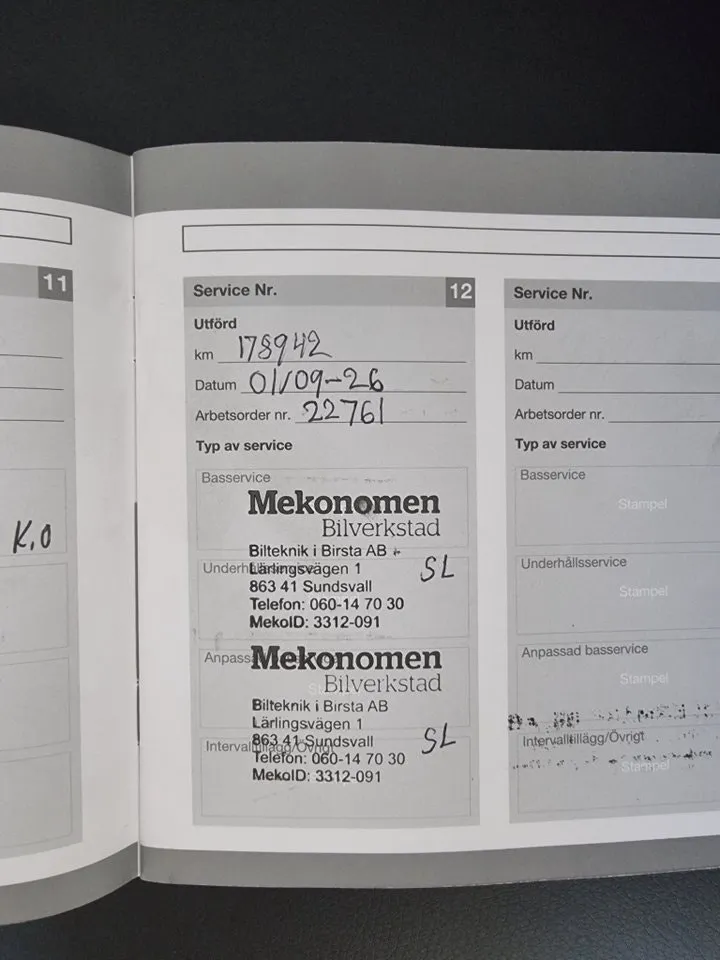 11
K.O
Service Nr. 12
Utförd
km 178942
Datum 01/09-26
Arbetsorder nr. 22761
Typ av service
Basservice
Mekonomen
Bilverkstad
Bilteknik i Birsta AB
Underhållsservice
Lärlingsvägen 1
SL
863 41 Sundsvall
Telefon: 060-14 70 30
MekoID: 3312-091
Anpassad
Mekonomen
Bilverkstad
Bilteknik i Birsta AB
Lärlingsvägen 1
SL
863 41 Sundsvall
Intervalltillägg/Övrigt
Telefon: 060-14 70 30
MekoID: 3312-091
Service Nr.
Utförd
km
Datum
Arbetsorder nr.
Typ av service
Basservice
Stampel
Underhållsservice
Stampel
Anpassad basservice
Stampel
Intervalltillägg/Övrigt
Stampel